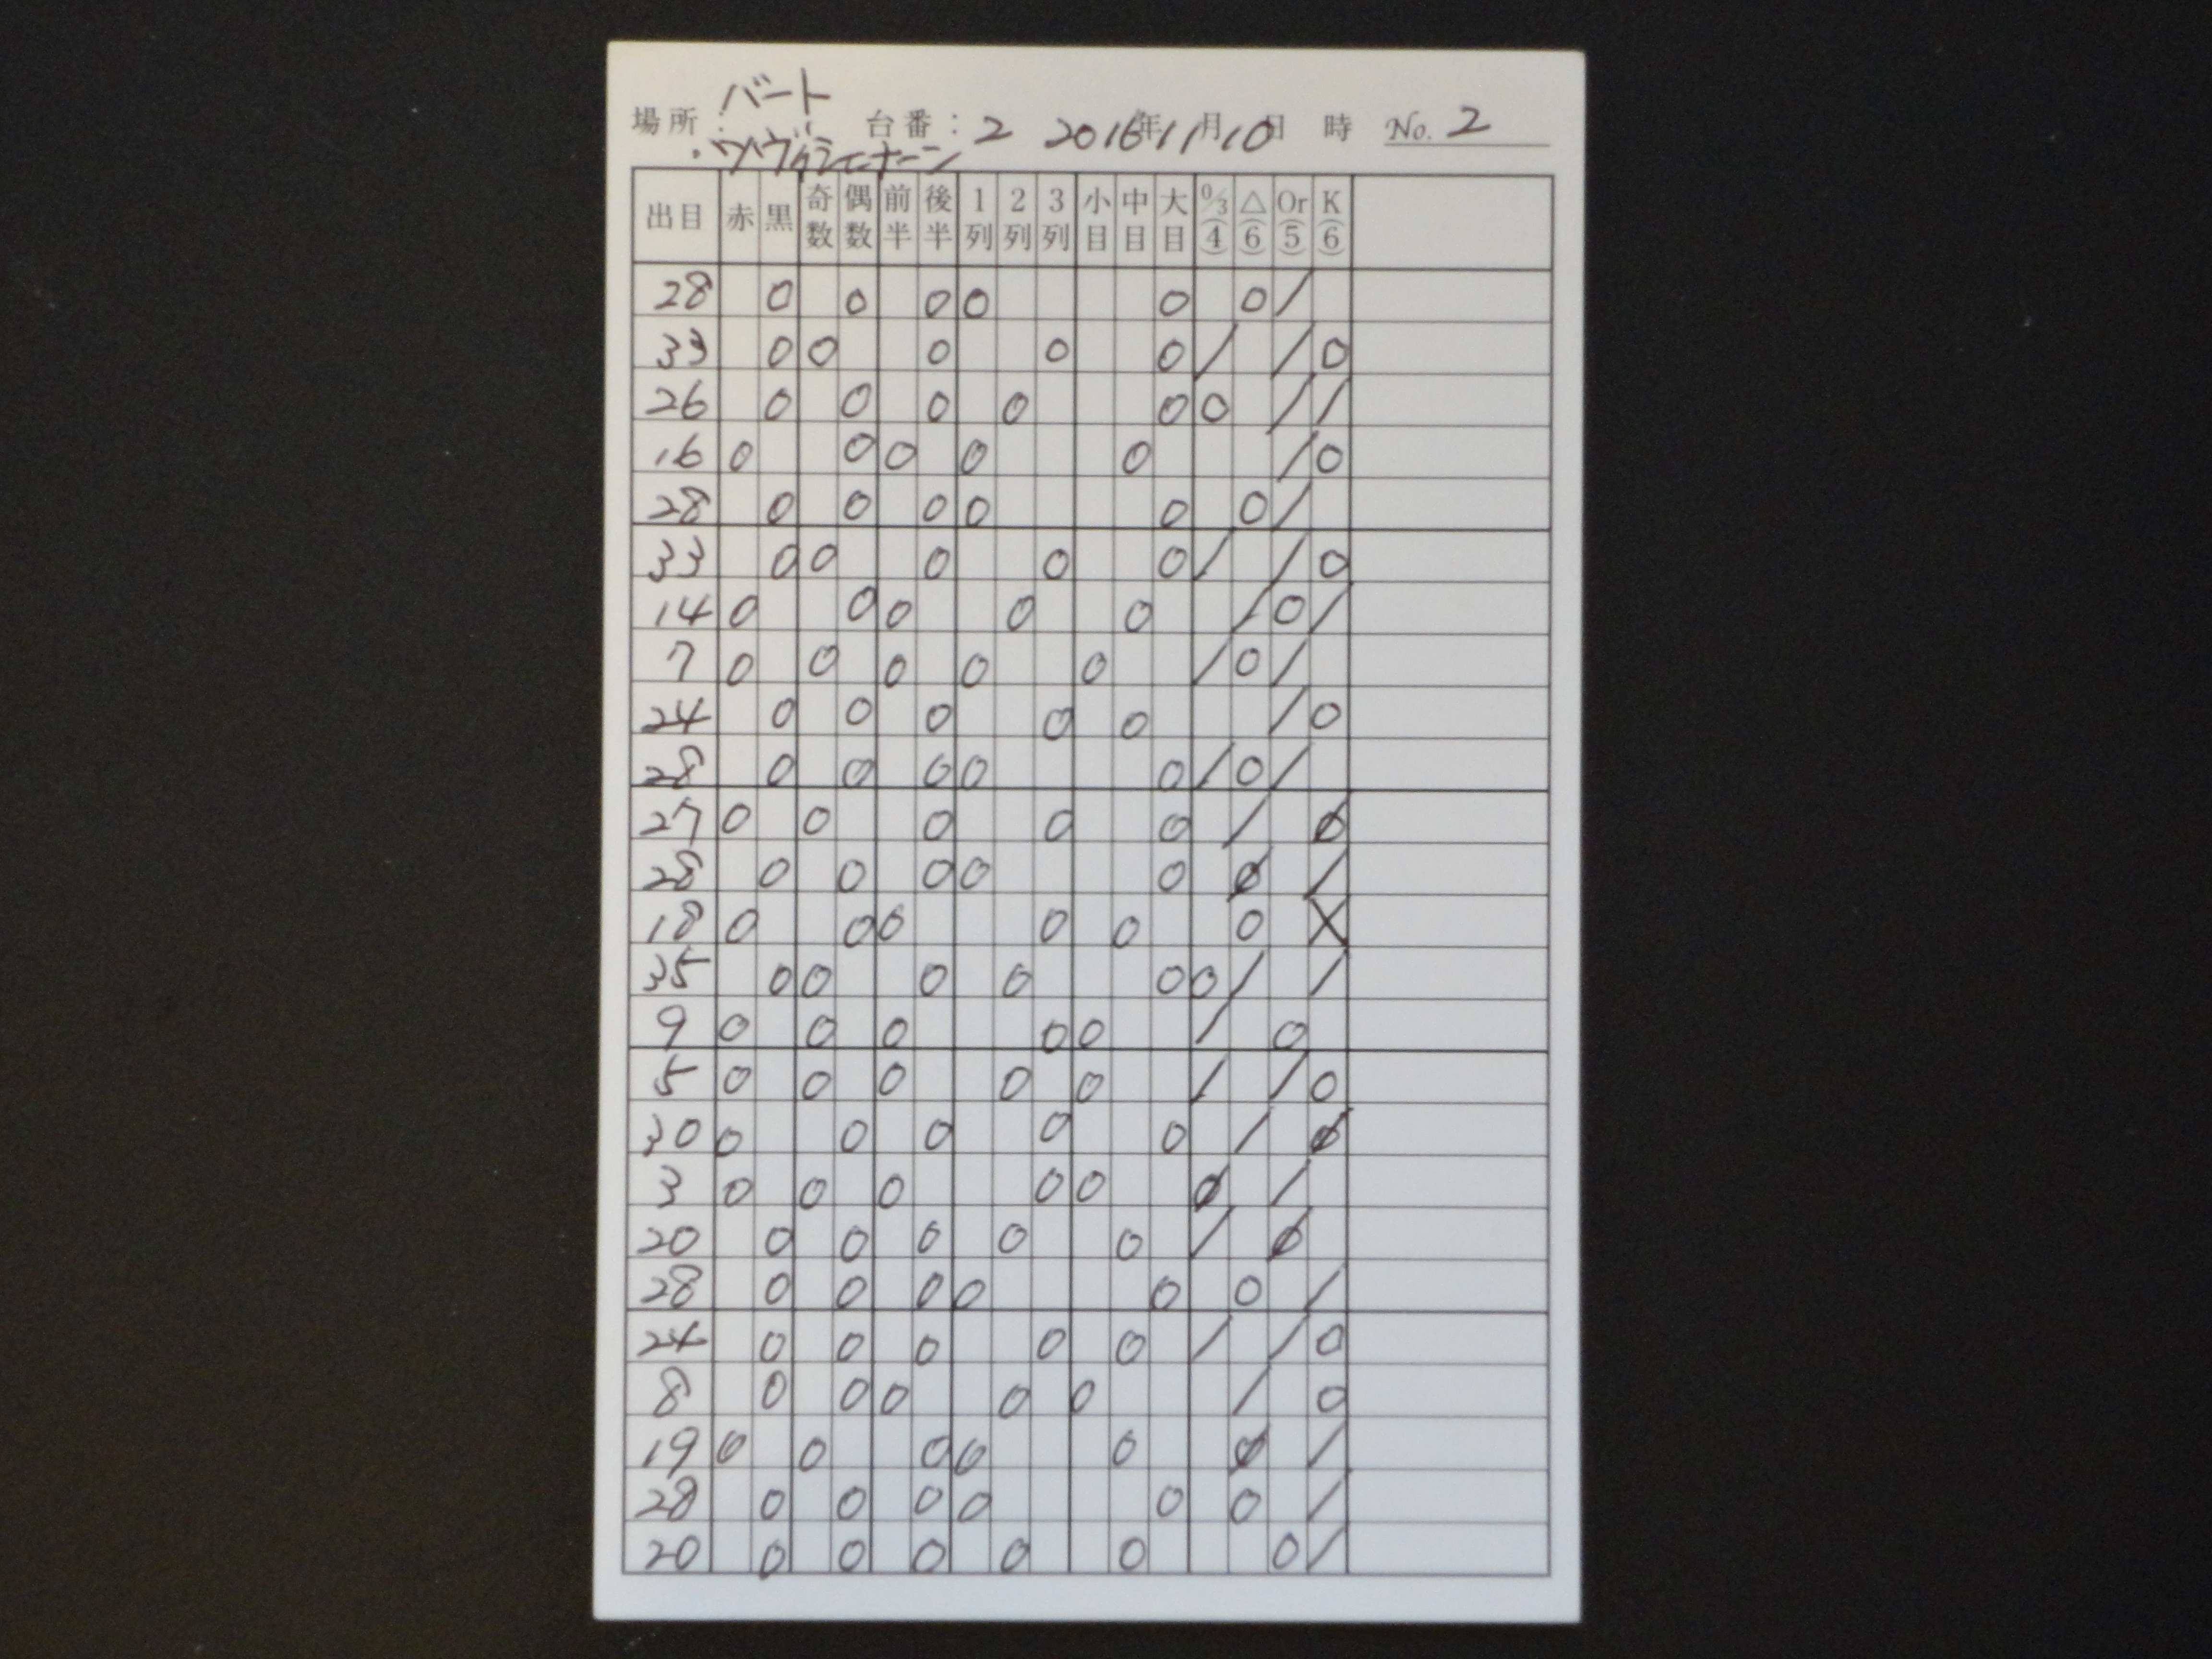 バート
場所： 台番：2 2016年11月10日 時 No. 2
出目 赤 黒 奇数 偶数 前半 後半 1列 2列 3列 小目 中目 大目 0/3(4) △(6) Or(5) K(6)
28 0 0 0 0 0 0 /
33 0 0 0 0 0 / / 0
26 0 0 0 0 0 0 / /
16 0 0 0 0 0 / 0
28 0 0 0 0 0 0 /
33 0 0 0 0 0 / / 0
14 0 0 0 0 0 / 0 /
7 0 0 0 0 0 / 0 /
24 0 0 0 0 0 / 0
28 0 0 0 0 0 / 0 /
27 0 0 0 0 0 / Ø
28 0 0 0 0 0 Ø /
18 0 0 0 0 0 0 X
35 0 0 0 0 0 0 / /
9 0 0 0 0 0 / 0
5 0 0 0 0 0 / / 0
30 0 0 0 0 0 / Ø
3 0 0 0 0 0 Ø /
20 0 0 0 0 0 / Ø
28 0 0 0 0 0 0 /
24 0 0 0 0 0 / / 0
8 0 0 0 0 0 / 0
19 0 0 0 0 0 Ø /
28 0 0 0 0 0 0 /
20 0 0 0 0 0 0 /